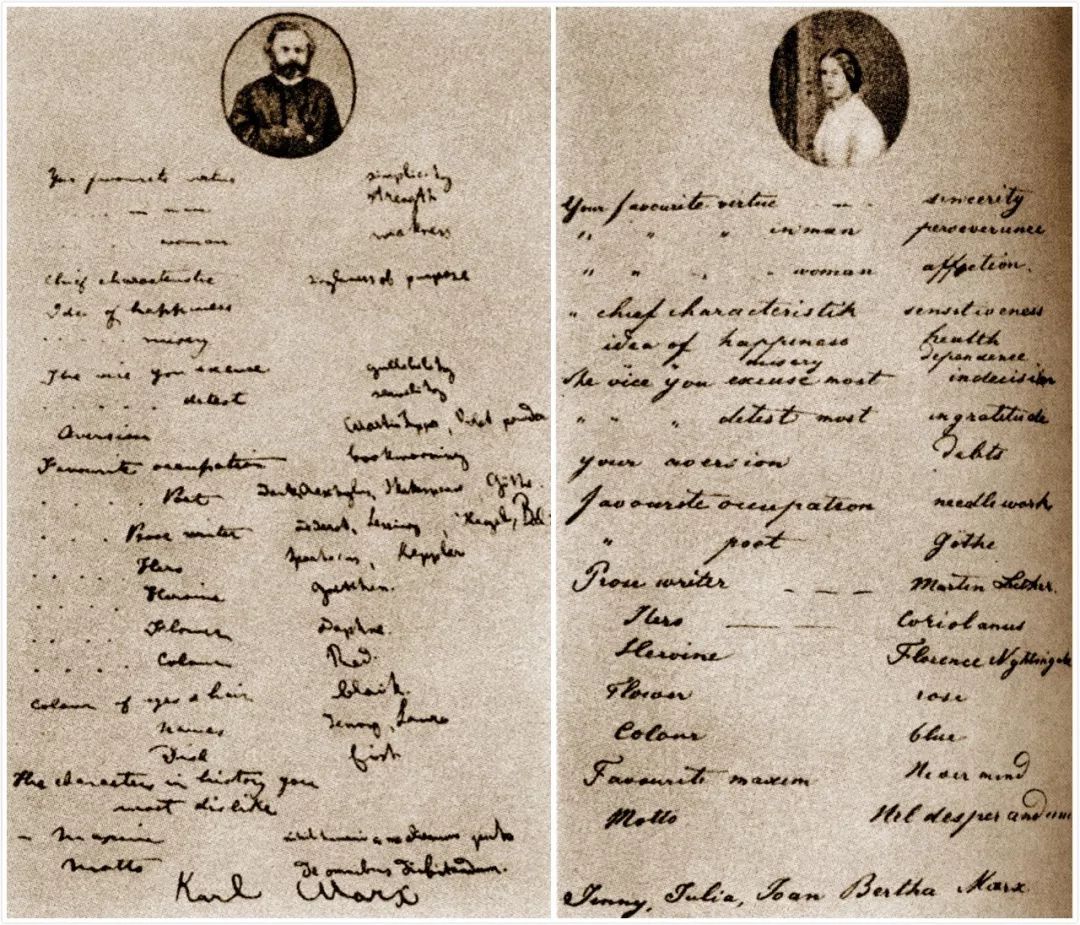 Your favourite virtue simplicity
" in man strength
" woman weakness
Chief characteristic singleness of purpose
Idea of happiness
misery
The vice you excuse gullibility
detest servility
Aversion Martin Tupper, violet powder
Favourite occupation bookworming
Poet Dante, Aeschylus, Shakespeare, Göthe
Prose writer Diderot, Lessing, Hegel, Bal
Hero Spartacus, Keppler
Heroine Gretchen.
Flower Daphne.
Colour Red.
Colour of eyes & hair black.
Names Jenny, Laura
Dish fish
The characters in history you
most dislike
- Maxim nihil humani a me alienum puto
Motto de omnibus dubitandum.
Karl Marx
Your favourite virtue sincerity
" " " in man perseverance
" " " " woman affection.
" chief characteristik sensitiveness
idea of happiness health
misery dependence
The vice you excuse most indecision
" " " detest most ingratitude
your aversion debts
favourite occupation needlework
" poet Göthe
Prose writer - - - Martin Luther.
Hero Coriolanus
Heroine Florence Nightingale
Flower rose
Colour blue
Favourite maxim Never mind
Motto Nil desperandum
Jenny, Julia, Joan Bertha Marx